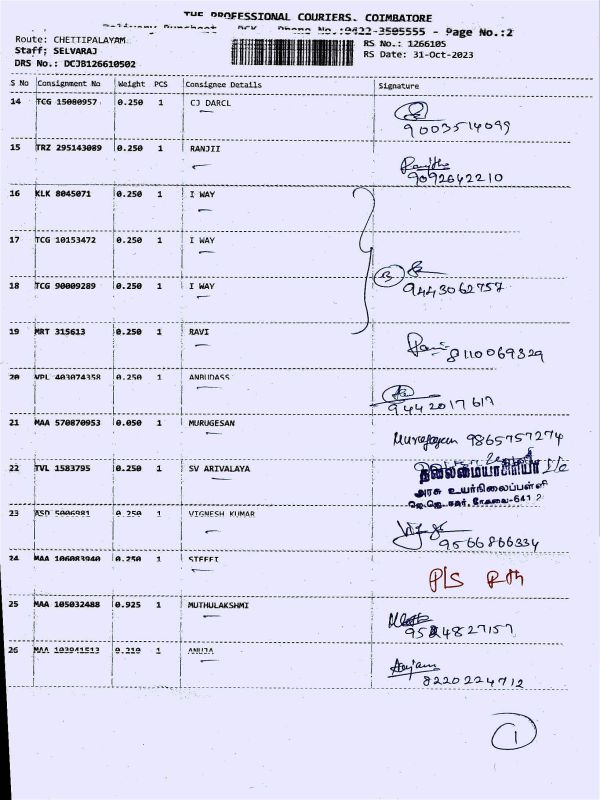 THE PROFESSIONAL COURIERS. COIMBATORE
Delivery Runsheet - DCK - Phone No.:0422-3505555 - Page No.:2
Route: CHETTIPALAYAM
RS No.: 1266105
Staff: SELVARAJ
RS Date: 31-Oct-2023
DRS No.: DCJB126610502
S No Consignment No Weight PCS Consignee Details Signature
14 TCG 15080957 0.250 1 CJ DARCL
9003514099
15 TRZ 295143089 0.250 1 RANJII
Ranjitha
9092642210
16 KLK 8045071 0.250 1 I WAY
17 TCG 10153472 0.250 1 I WAY
18 TCG 90009289 0.250 1 I WAY
3
9443062757
19 MRT 315613 0.250 1 RAVI
Ravi 8110069329
20 VPL 403074358 0.250 1 ANBUDASS
9442017617
21 MAA 570870953 0.050 1 MURUGESAN
Murugesan 9865757274
22 TVL 1583795 0.250 1 SV ARIVALAYA
தலைமையாசிரியர்
அரசு உயர்நிலைப்பள்ளி
23 ASD 5006981 0.250 1 VIGNESH KUMAR
9566866334
24 MAA 106083940 0.250 1 STEFFI
P/S
25 MAA 105032488 0.925 1 MUTHULAKSHMI
9524827157
26 MAA 103941513 0.210 1 ANUJA
8220224712
1